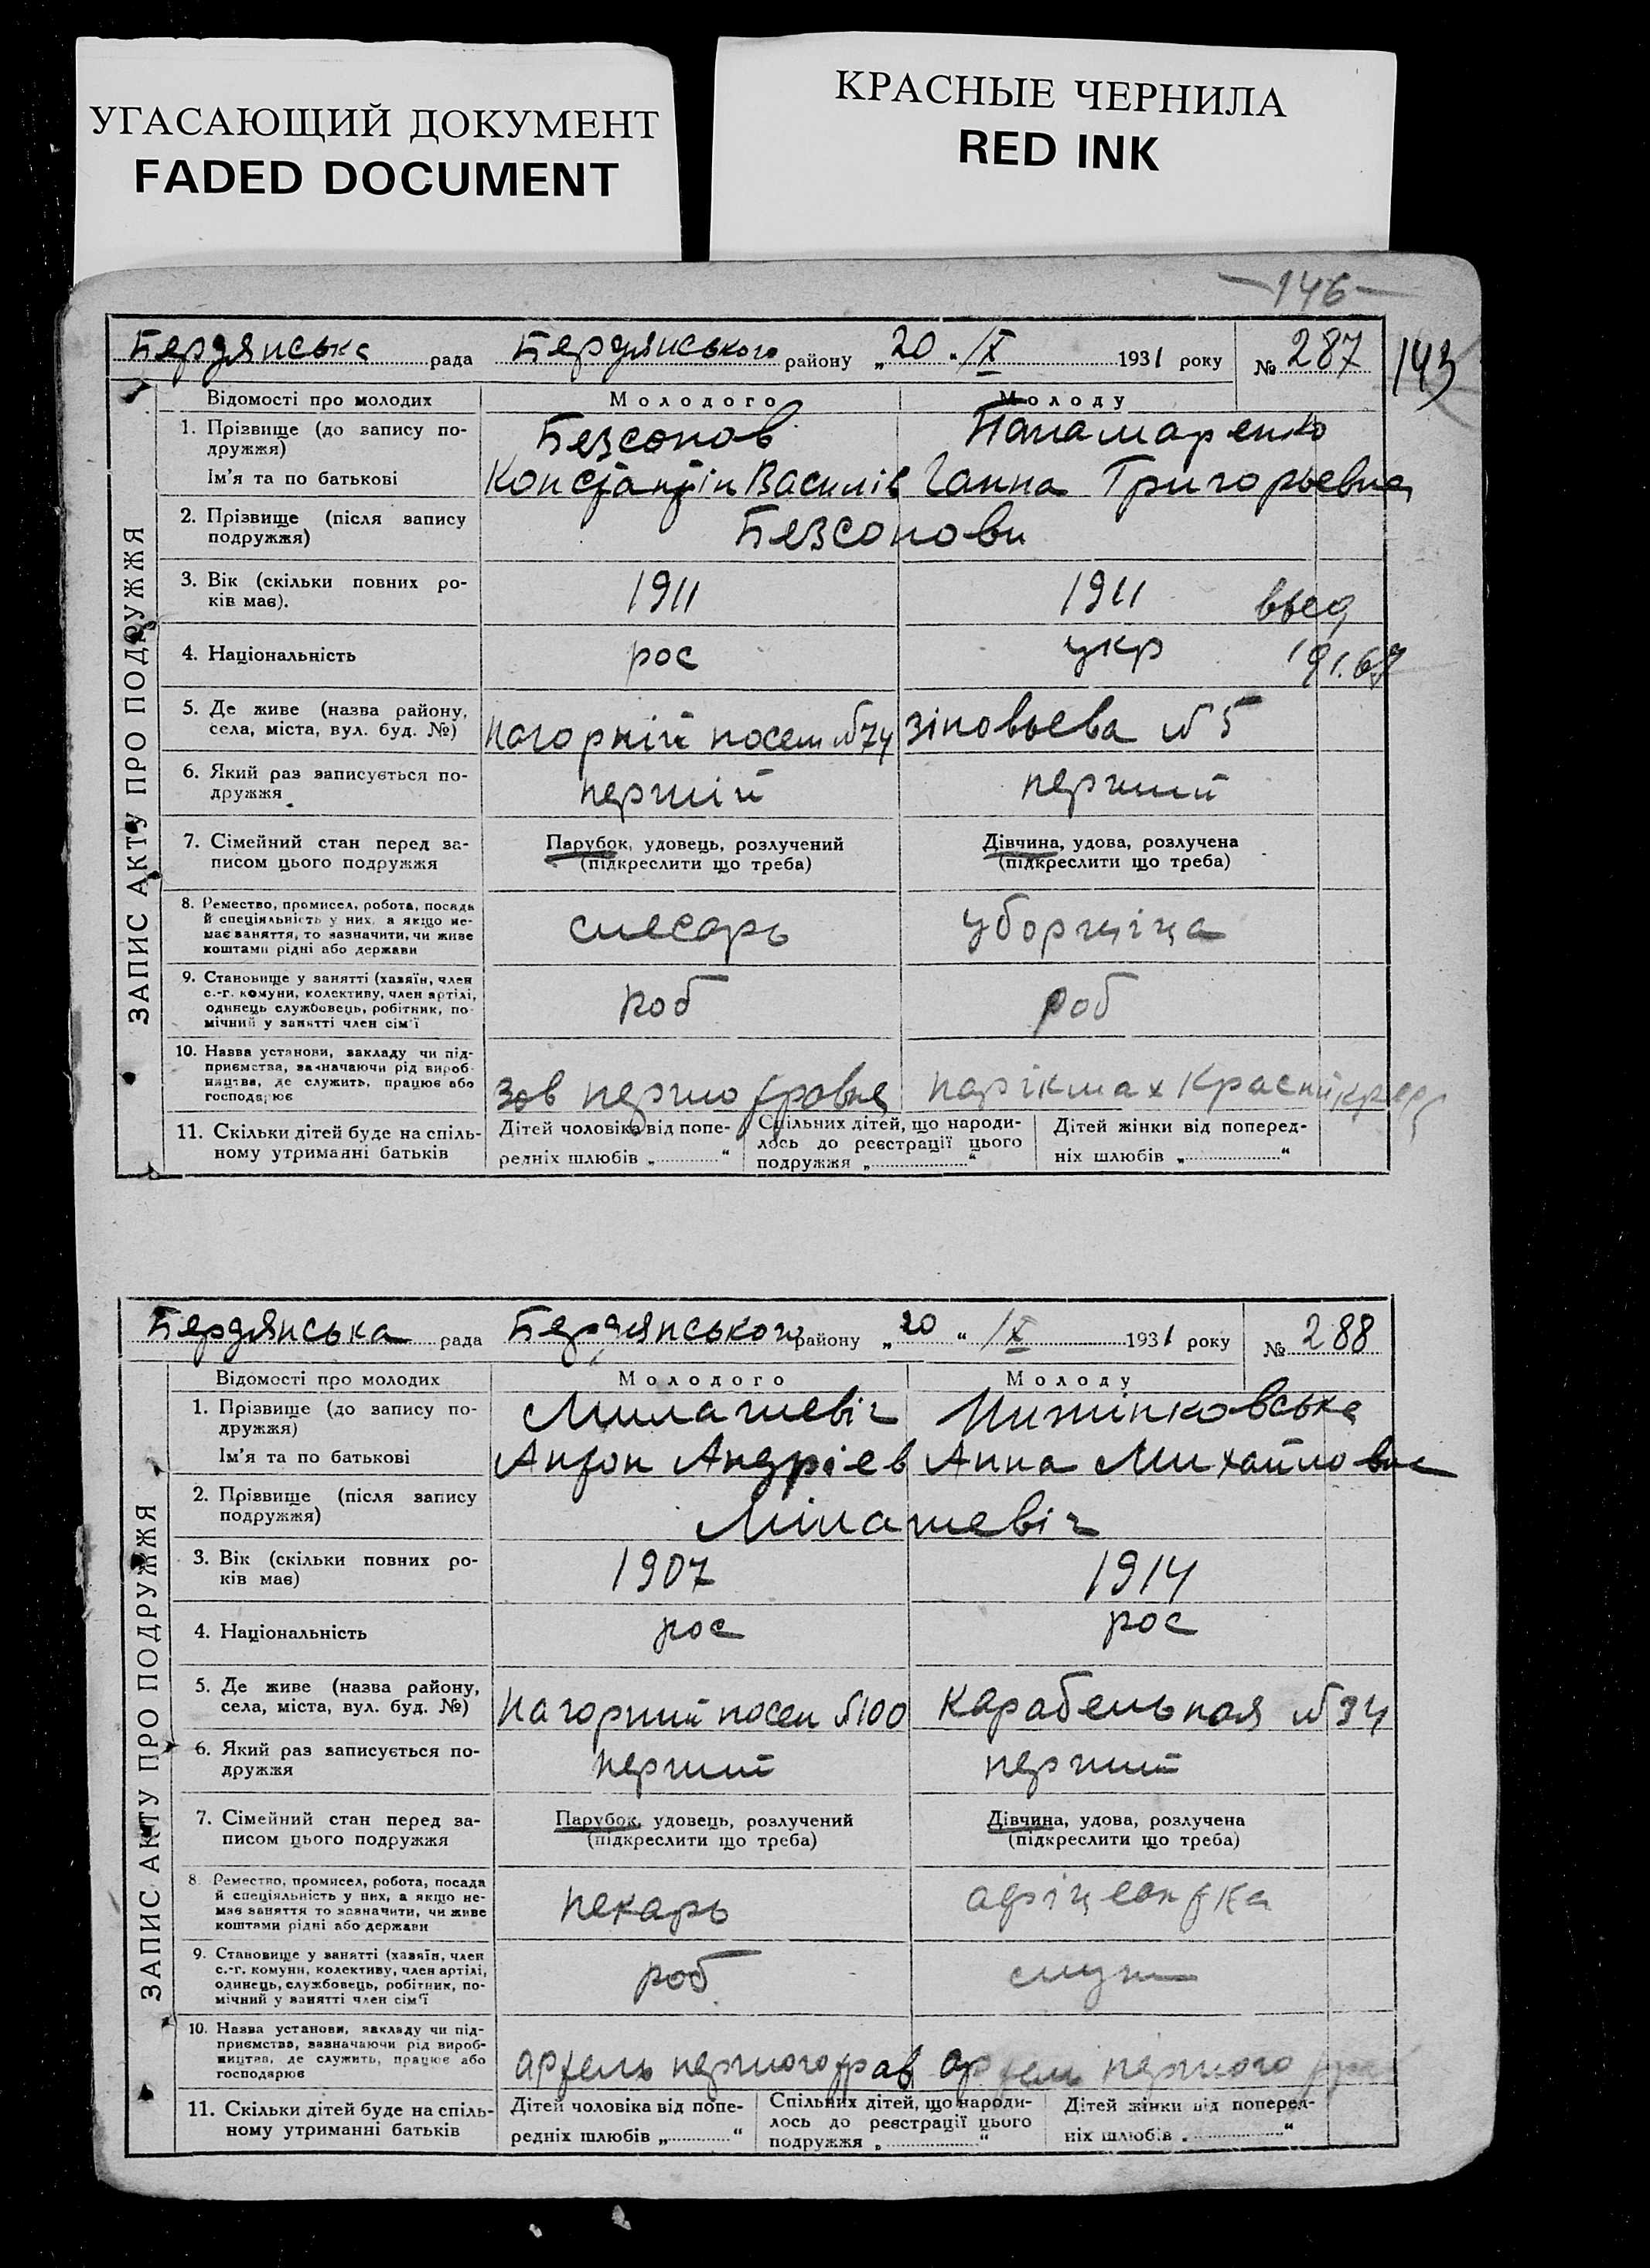 УГАСАЮЩИЙ ДОКУМЕНТ
FADED DOCUMENT
КРАСНЫЕ ЧЕРНИЛА
RED INK
—146—
Бердянська рада Бердянського району „20 „ IX 1931 року № 287
143
ЗАПИС АКТУ ПРО ПОДРУЖЖЯ
Відомості про молодих Молодого Молоду
1. Прізвище (до запису по- Безсонов Панамаренко
дружжя)
Ім'я та по батькові Констянтін Василів Ганна Григорьевна
2. Прізвище (після запису Безсонови
подружжя)
3. Вік (скільки повних ро- 1911 1911
ків має).
4. Національність рос укр
5. Де живе (назва району,
села, міста, вул. буд. №) нагорний посел №74 зіновьева №5
6. Який раз записується по- перший перший
дружжя
7. Сімейний стан перед за- Парубок, удовець, розлучений Дівчина, удова, розлучена
писом цього подружжя (підкреслити що треба) (підкреслити що треба)
8. Ремество, промисел, робота, посада
й спеціяльність у них, а якщо не-
має заняття, то зазначити, чи живе слесарь уборщіца
коштами рідні або держави
9. Становище у занятті (хазяїн, член
с.-г. комуни, колективу, член артілі,
одинець службовець, робітник, по- роб роб
мічний у занятті член сім'ї
10. Назва установи, закладу чи під-
приємства, зазначаючи рід вироб-
ництва, де служить, працює або
господарює зав першо травня парікмах
11. Скільки дітей буде на спіль- Дітей чоловіка від попе- Спільних дітей, що народи- Дітей жінки від поперед-
ному утриманні батьків редніх шлюбів „ “ лось до реєстрації цього ніх шлюбів „ “
подружжя „ “
Бердянська рада Бердянського району „20 “ IX 1931 року № 288
ЗАПИС АКТУ ПРО ПОДРУЖЖЯ
Відомості про молодих Молодого Молоду
1. Прізвище (до запису по- Милашевіч
дружжя)
Ім'я та по батькові Антон Андріев Анна Михайловна
2. Прізвище (після запису
подружжя) Мілашевіч
3. Вік (скільки повних ро- 1907 1914
ків має)
4. Національність рос рос
5. Де живе (назва району,
села, міста, вул. буд. №) нагорний посел №100 карабельная №34
6. Який раз записується по- перший перший
дружжя
7. Сімейний стан перед за- Парубок, удовець, розлучений Дівчина, удова, розлучена
писом цього подружжя (підкреслити що треба) (підкреслити що треба)
8. Ремество, промисел, робота, посада
й спеціяльність у них, а якщо не-
має заняття то зазначити, чи живе пекарь офіцеантка
коштами рідні або держави
9. Становище у занятті (хазяїн, член
с.-г. комуни, колективу, член артілі,
одинець, службовець, робітник, по- роб служ
мічний у занятті член сім'ї
10. Назва установи, закладу чи під-
приємства, зазначаючи рід вироб-
ництва, де служить, працює або
господарює артель першого трав артель першого
11. Скільки дітей буде на спіль- Дітей чоловіка від попе- Спільних дітей, що народи- Дітей жінки від поперед-
ному утриманні батьків редніх шлюбів „ “ лось до реєстрації цього ніх шлюбів „ “
подружжя „ “